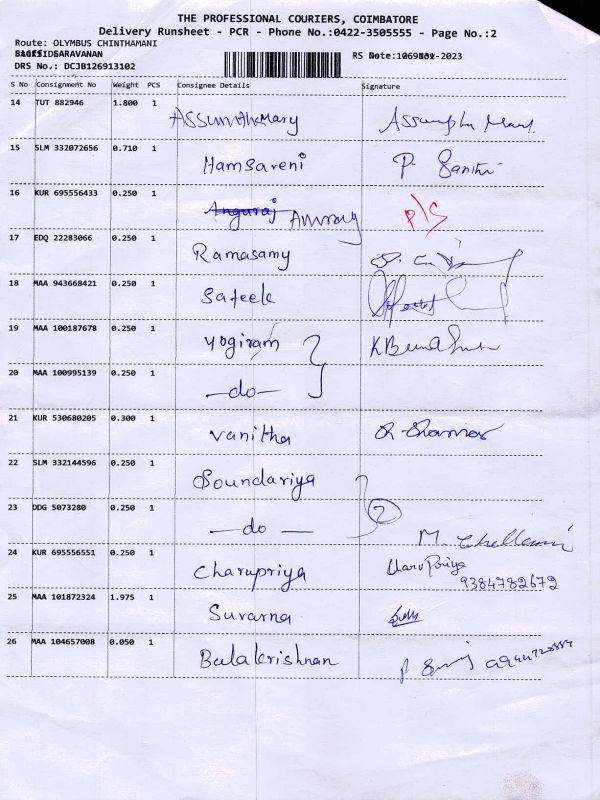 THE PROFESSIONAL COURIERS, COIMBATORE
Delivery Runsheet - PCR - Phone No.:0422-3505555 - Page No.:2
Route: OLYMBUS CHINTHAMANI
SARAVANAN
RS Date: -2023
DRS No.: DCJB126913102
S No Consignment No Weight PCS Consignee Details Signature
14 TUT 882946 1.800 1 Assumtha Mary
15 SLM 332072656 0.710 1 Hamsareni P.
16 KUR 695556433 0.250 1 Anguraj P/S
17 EDQ 22283066 0.250 1 Ramasamy
18 MAA 943668421 0.250 1 Sateek
19 MAA 100187678 0.250 1 Yogiram
20 MAA 100995139 0.250 1 —do—
21 KUR 530680205 0.300 1 Vanitha
22 SLM 332144596 0.250 1 Soundariya
23 DDG 5073280 0.250 1 —do— 2 M.
24 KUR 695556551 0.250 1 Charupriya Charu Priya
9384782672
25 MAA 101872324 1.975 1 Suvarna
26 MAA 104657008 0.050 1 Balakrishnan